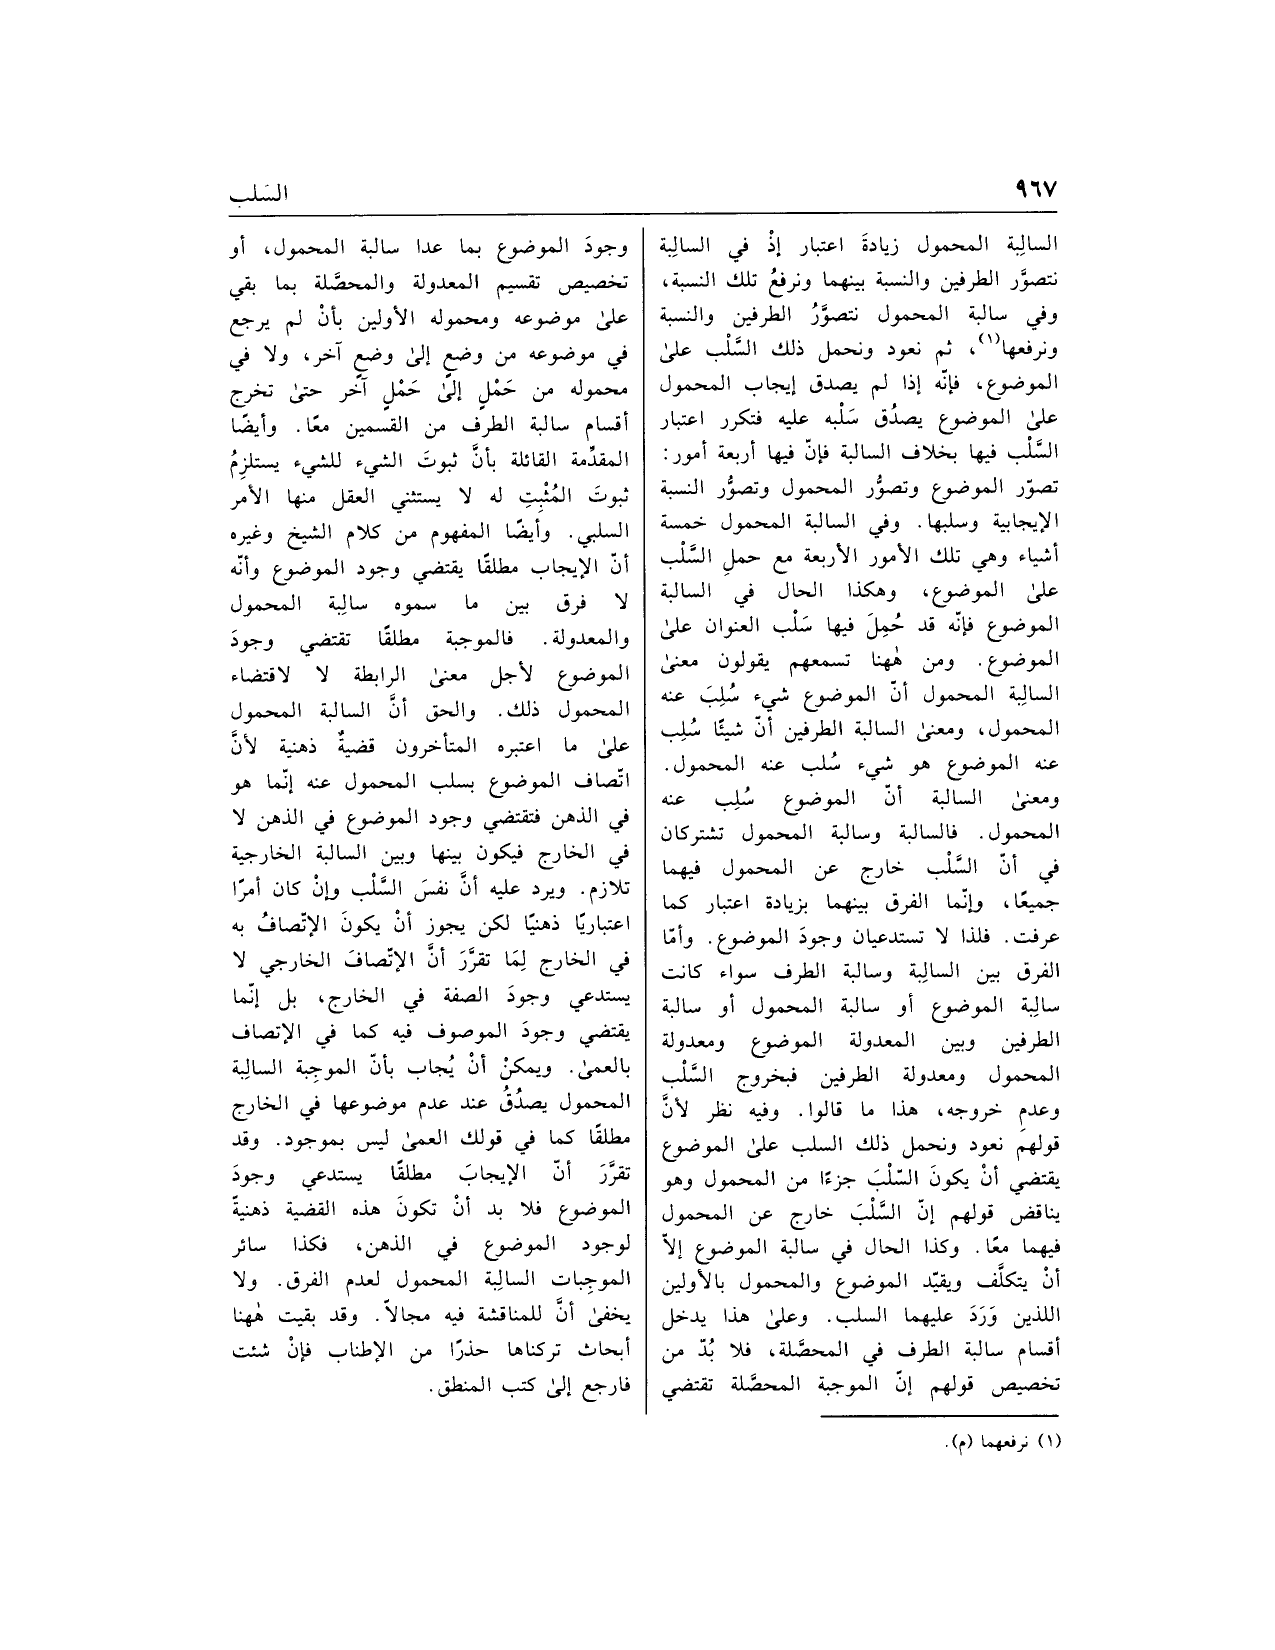 ٩٦٧
السَلب
السالِبة المحمول زيادةَ اعتبار إذْ في السالِبة
نتصوَّر الطرفين والنسبة بينهما ونرفعُ تلك النسبة،
وفي سالبة المحمول نتصوَّرُ الطرفين والنسبة
ونرفعها(١)، ثم نعود ونحمل ذلك السَّلْب علىٰ
الموضوع، فإنّه إذا لم يصدق إيجاب المحمول
علىٰ الموضوع يصدُق سَلْبه عليه فتكرر اعتبار
السَّلْب فيها بخلاف السالبة فإنّ فيها أربعة أمور:
تصوّر الموضوع وتصوُّر المحمول وتصوُّر النسبة
الإيجابية وسلبها. وفي السالبة المحمول خمسة
أشياء وهي تلك الأمور الأربعة مع حملِ السَّلْب
علىٰ الموضوع، وهكذا الحال في السالبة
الموضوع فإنّه قد حُمِلَ فيها سَلْب العنوان علىٰ
الموضوع. ومن هٰهنا تسمعهم يقولون معنىٰ
السالِبة المحمول أنّ الموضوع شيء سُلِبَ عنه
المحمول، ومعنىٰ السالبة الطرفين أنّ شيئًا سُلِب
عنه الموضوع هو شيء سُلب عنه المحمول.
ومعنىٰ السالبة أنّ الموضوع سُلِب عنه
المحمول. فالسالبة وسالبة المحمول تشتركان
في أنّ السَّلْب خارج عن المحمول فيهما
جميعًا، وإنّما الفرق بينهما بزيادة اعتبار كما
عرفت. فلذا لا تستدعيان وجودَ الموضوع. وأمّا
الفرق بين السالِبة وسالبة الطرف سواء كانت
سالِبة الموضوع أو سالبة المحمول أو سالبة
الطرفين وبين المعدولة الموضوع ومعدولة
المحمول ومعدولة الطرفين فبخروج السَّلْب
وعدمِ خروجه، هذا ما قالوا. وفيه نظر لأنَّ
قولهم نعود ونحمل ذلك السلب علىٰ الموضوع
يقتضي أنْ يكونَ السّلْبَ جزءًا من المحمول وهو
يناقض قولهم إنّ السَّلْبَ خارج عن المحمول
فيهما معًا. وكذا الحال في سالبة الموضوع إلاّ
أنْ يتكلَّف ويقيّد الموضوع والمحمول بالأولين
اللذين وَرَدَ عليهما السلب. وعلىٰ هذا يدخل
أقسام سالبة الطرف في المحصَّلة، فلا بُدّ من
تخصيص قولهم إنّ الموجبة المحصّلة تقتضي
وجودَ الموضوع بما عدا سالبة المحمول، أو
تخصيص تقسيم المعدولة والمحصَّلة بما بقي
علىٰ موضوعه ومحموله الأولين بأنْ لم يرجع
في موضوعه من وضعٍ إلىٰ وضعٍ آخر، ولا في
محموله من حَمْلٍ إلىٰ حَمْلٍ آخر حتىٰ تخرج
أقسام سالبة الطرف من القسمين معًا. وأيضًا
المقدِّمة القائلة بأنَّ ثبوتَ الشيء للشيء يستلزِمُ
ثبوتَ المُثْبِتِ له لا يستثني العقل منها الأمر
السلبي. وأيضًا المفهوم من كلام الشيخ وغيره
أنّ الإيجاب مطلقًا يقتضي وجود الموضوع وأنّه
لا فرق بين ما سموه سالِبة المحمول
والمعدولة. فالموجبة مطلقًا تقتضي وجودَ
الموضوع لأجل معنىٰ الرابطة لا لاقتضاء
المحمول ذلك. والحق أنَّ السالبة المحمول
علىٰ ما اعتبره المتأخرون قضيةٌ ذهنية لأنَّ
اتّصاف الموضوع بسلب المحمول عنه إنّما هو
في الذهن فتقتضي وجود الموضوع في الذهن لا
في الخارج فيكون بينها وبين السالبة الخارجية
تلازم. ويرد عليه أنَّ نفسَ السَّلْب وإنْ كان أمرًا
اعتباريًا ذهنيًا لكن يجوز أنْ يكونَ الإتّصافُ به
في الخارج لِمَا تقرَّرَ أنَّ الإتّصافَ الخارجي لا
يستدعي وجودَ الصفة في الخارج، بل إنّما
يقتضي وجودَ الموصوف فيه كما في الإتصاف
بالعمىٰ. ويمكنْ أنْ يُجاب بأنّ الموجِبة السالِبة
المحمول يصدُقُ عند عدم موضوعها في الخارج
مطلقًا كما في قولك العمىٰ ليس بموجود. وقد
تقرَّرَ أنّ الإيجابَ مطلقًا يستدعي وجودَ
الموضوع فلا بد أنْ تكونَ هذه القضية ذهنيةً
لوجود الموضوع في الذهن، فكذا سائر
الموجِبات السالِبة المحمول لعدم الفرق. ولا
يخفىٰ أنَّ للمناقشة فيه مجالاً. وقد بقيت هٰهنا
أبحاث تركناها حذرًا من الإطناب فإنْ شئت
فارجع إلىٰ كتب المنطق.
(١) نرفعهما (م).